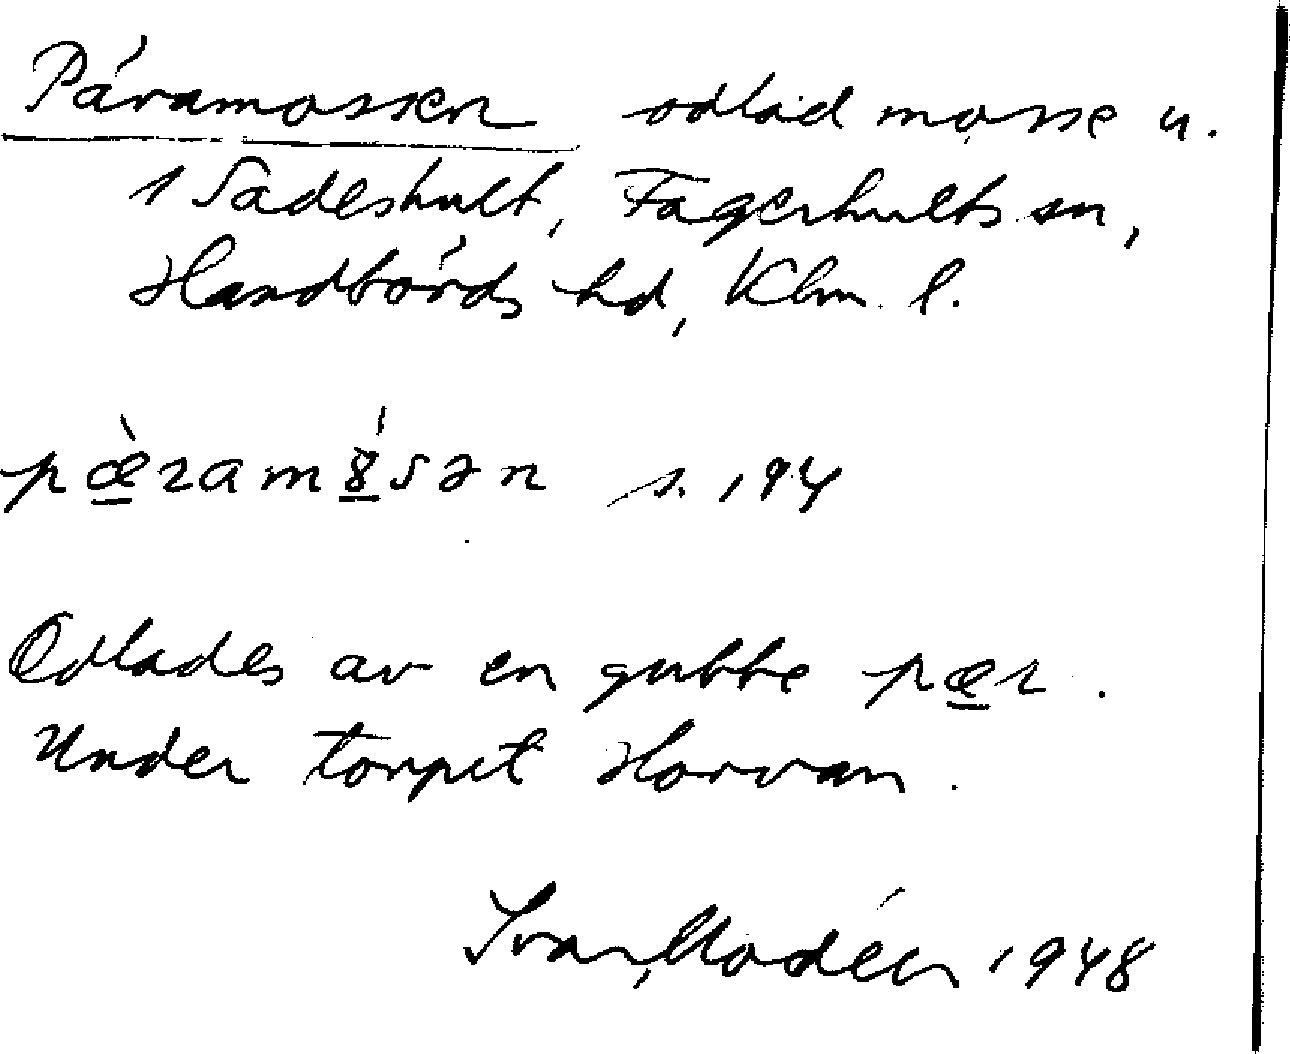 Päramossen odlad mosse u.
1 Sadeshult, Fagerhults sn,
Handbörds hd, Klm. l.
pæ̀ramɤ́sən s. 194
Odlades av en gubbe pær.
Under torpet Horvan.
Ivar Modéer 1948